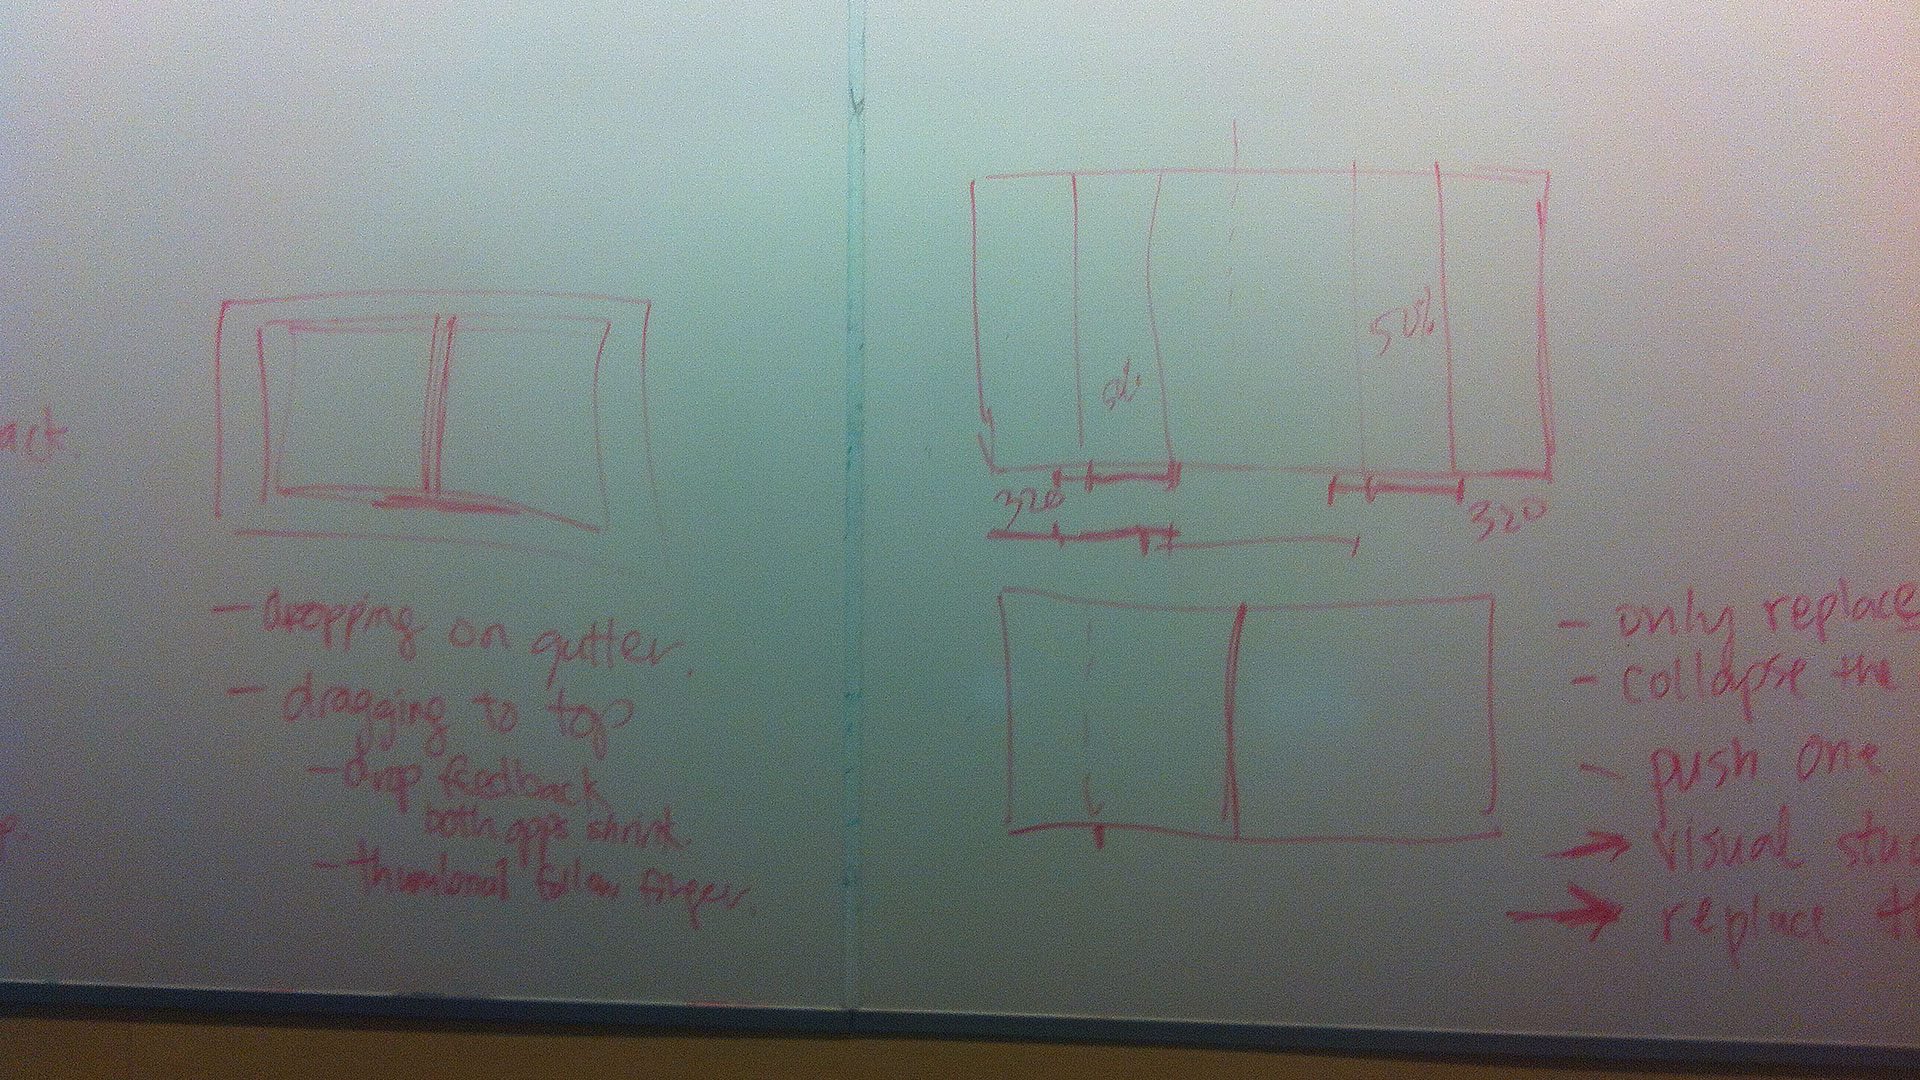 act.
- dropping on gutter.
- dragging to top
- drop feedback
both apps shrink.
- thumbnail follow finger.
50%
320
320
- only replace
- collapse the
- push one
→ visual stu
→ replace th